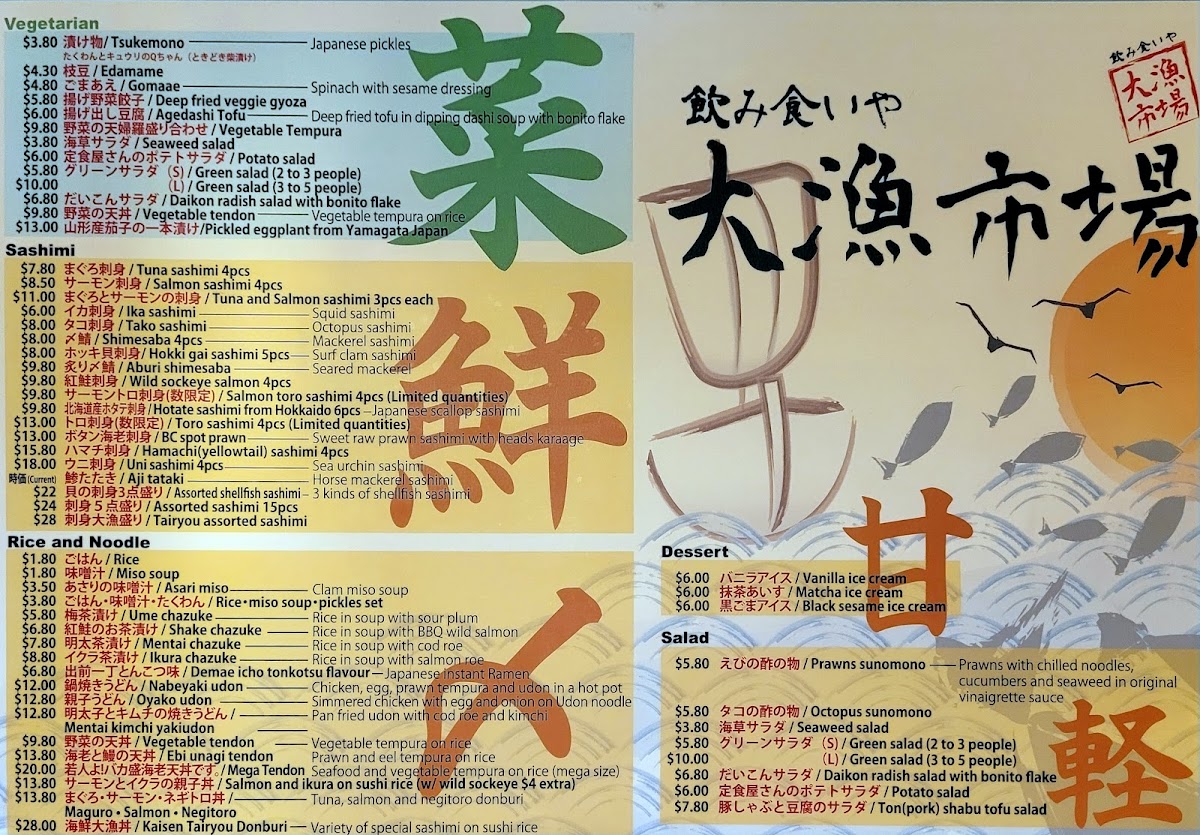 Vegetarian
$3.80 漬け物/ Tsukemono Japanese pickles
たくわんとキュウリのQちゃん（ときどき柴漬け）
$4.30 枝豆 / Edamame
$4.80 ごまあえ / Gomaae Spinach with sesame dressing
$5.80 揚げ野菜餃子 / Deep fried veggie gyoza
$6.00 揚げ出し豆腐 / Agedashi Tofu Deep fried tofu in dipping dashi soup with bonito flake
$9.80 野菜の天婦羅盛り合わせ / Vegetable Tempura
$3.80 海草サラダ / Seaweed salad
$6.00 定食屋さんのポテトサラダ / Potato salad
$5.80 グリーンサラダ（S) / Green salad (2 to 3 people)
$10.00 （L) / Green salad (3 to 5 people)
$6.80 だいこんサラダ / Daikon radish salad with bonito flake
$9.80 野菜の天丼 / Vegetable tendon Vegetable tempura on rice
$13.00 山形産茄子の一本漬け/Pickled eggplant from Yamagata Japan
菜
Sashimi
$7.80 まぐろ刺身 / Tuna sashimi 4pcs
$8.50 サーモン刺身 / Salmon sashimi 4pcs
$11.00 まぐろとサーモンの刺身 / Tuna and Salmon sashimi 3pcs each
$6.00 イカ刺身 / Ika sashimi Squid sashimi
$8.00 タコ刺身 / Tako sashimi Octopus sashimi
$8.00 〆鯖 / Shimesaba 4pcs Mackerel sashimi
$8.00 ホッキ貝刺身/ Hokki gai sashimi 5pcs Surf clam sashimi
$9.80 炙り〆鯖 / Aburi shimesaba Seared mackerel
$9.80 紅鮭刺身 / Wild sockeye salmon 4pcs
$9.80 サーモントロ刺身(数限定) / Salmon toro sashimi 4pcs (Limited quantities)
$9.80 北海道産ホタテ刺身/ Hotate sashimi from Hokkaido 6pcs Japanese scallop sashimi
$13.00 トロ刺身(数限定) / Toro sashimi 4pcs (Limited quantities)
$13.00 ボタン海老刺身 / BC spot prawn Sweet raw prawn sashimi with heads karaage
$15.80 ハマチ刺身 / Hamachi(yellowtail) sashimi 4pcs
$18.00 ウニ刺身 / Uni sashimi 4pcs Sea urchin sashimi
時価(Current) 鯵たたき / Aji tataki Horse mackerel sashimi
$22 貝の刺身3点盛り / Assorted shellfish sashimi 3 kinds of shellfish sashimi
$24 刺身５点盛り / Assorted sashimi 15pcs
$28 刺身大漁盛り / Tairyou assorted sashimi
鮮
Rice and Noodle
$1.80 ごはん / Rice
$1.80 味噌汁 / Miso soup
$3.50 あさりの味噌汁 / Asari miso Clam miso soup
$3.80 ごはん・味噌汁・たくわん / Rice・miso soup・pickles set
$5.80 梅茶漬け / Ume chazuke Rice in soup with sour plum
$6.80 紅鮭のお茶漬け / Shake chazuke Rice in soup with BBQ wild salmon
$7.80 明太茶漬け / Mentai chazuke Rice in soup with cod roe
$8.80 イクラ茶漬け / Ikura chazuke Rice in soup with salmon roe
$6.80 出前一丁とんこつ味 / Demae icho tonkotsu flavour Japanese Instant Ramen
$12.00 鍋焼きうどん / Nabeyaki udon Chicken, egg, prawn tempura and udon in a hot pot
$12.80 親子うどん / Oyako udon Simmered chicken with egg and onion on Udon noodle
$12.80 明太子とキムチの焼きうどん / Pan fried udon with cod roe and kimchi
Mentai kimchi yakiudon
$9.80 野菜の天丼 / Vegetable tendon Vegetable tempura on rice
$13.80 海老と鰻の天丼 / Ebi unagi tendon Prawn and eel tempura on rice
$20.00 若人よ!バカ盛海老天丼です。/ Mega Tendon Seafood and vegetable tempura on rice (mega size)
$13.80 サーモンとイクラの親子丼 / Salmon and ikura on sushi rice (w/ wild sockeye $4 extra)
$13.80 まぐろ・サーモン・ネギトロ丼 / Tuna, salmon and negitoro donburi
Maguro・Salmon・Negitoro
$28.00 海鮮大漁丼 / Kaisen Tairyou Donburi Variety of special sashimi on sushi rice
〆
飲み食いや
大漁市場
飲み食いや
大漁
市場
Dessert
$6.00 バニラアイス / Vanilla ice cream
$6.00 抹茶あいす / Matcha ice cream
$6.00 黒ごまアイス / Black sesame ice cream
甘
Salad
$5.80 えびの酢の物 / Prawns sunomono Prawns with chilled noodles,
cucumbers and seaweed in original
vinaigrette sauce
$5.80 タコの酢の物 / Octopus sunomono
$3.80 海草サラダ / Seaweed salad
$5.80 グリーンサラダ（S) / Green salad (2 to 3 people)
$10.00 （L) / Green salad (3 to 5 people)
$6.80 だいこんサラダ / Daikon radish salad with bonito flake
$6.00 定食屋さんのポテトサラダ / Potato salad
$7.80 豚しゃぶと豆腐のサラダ / Ton(pork) shabu tofu salad
軽